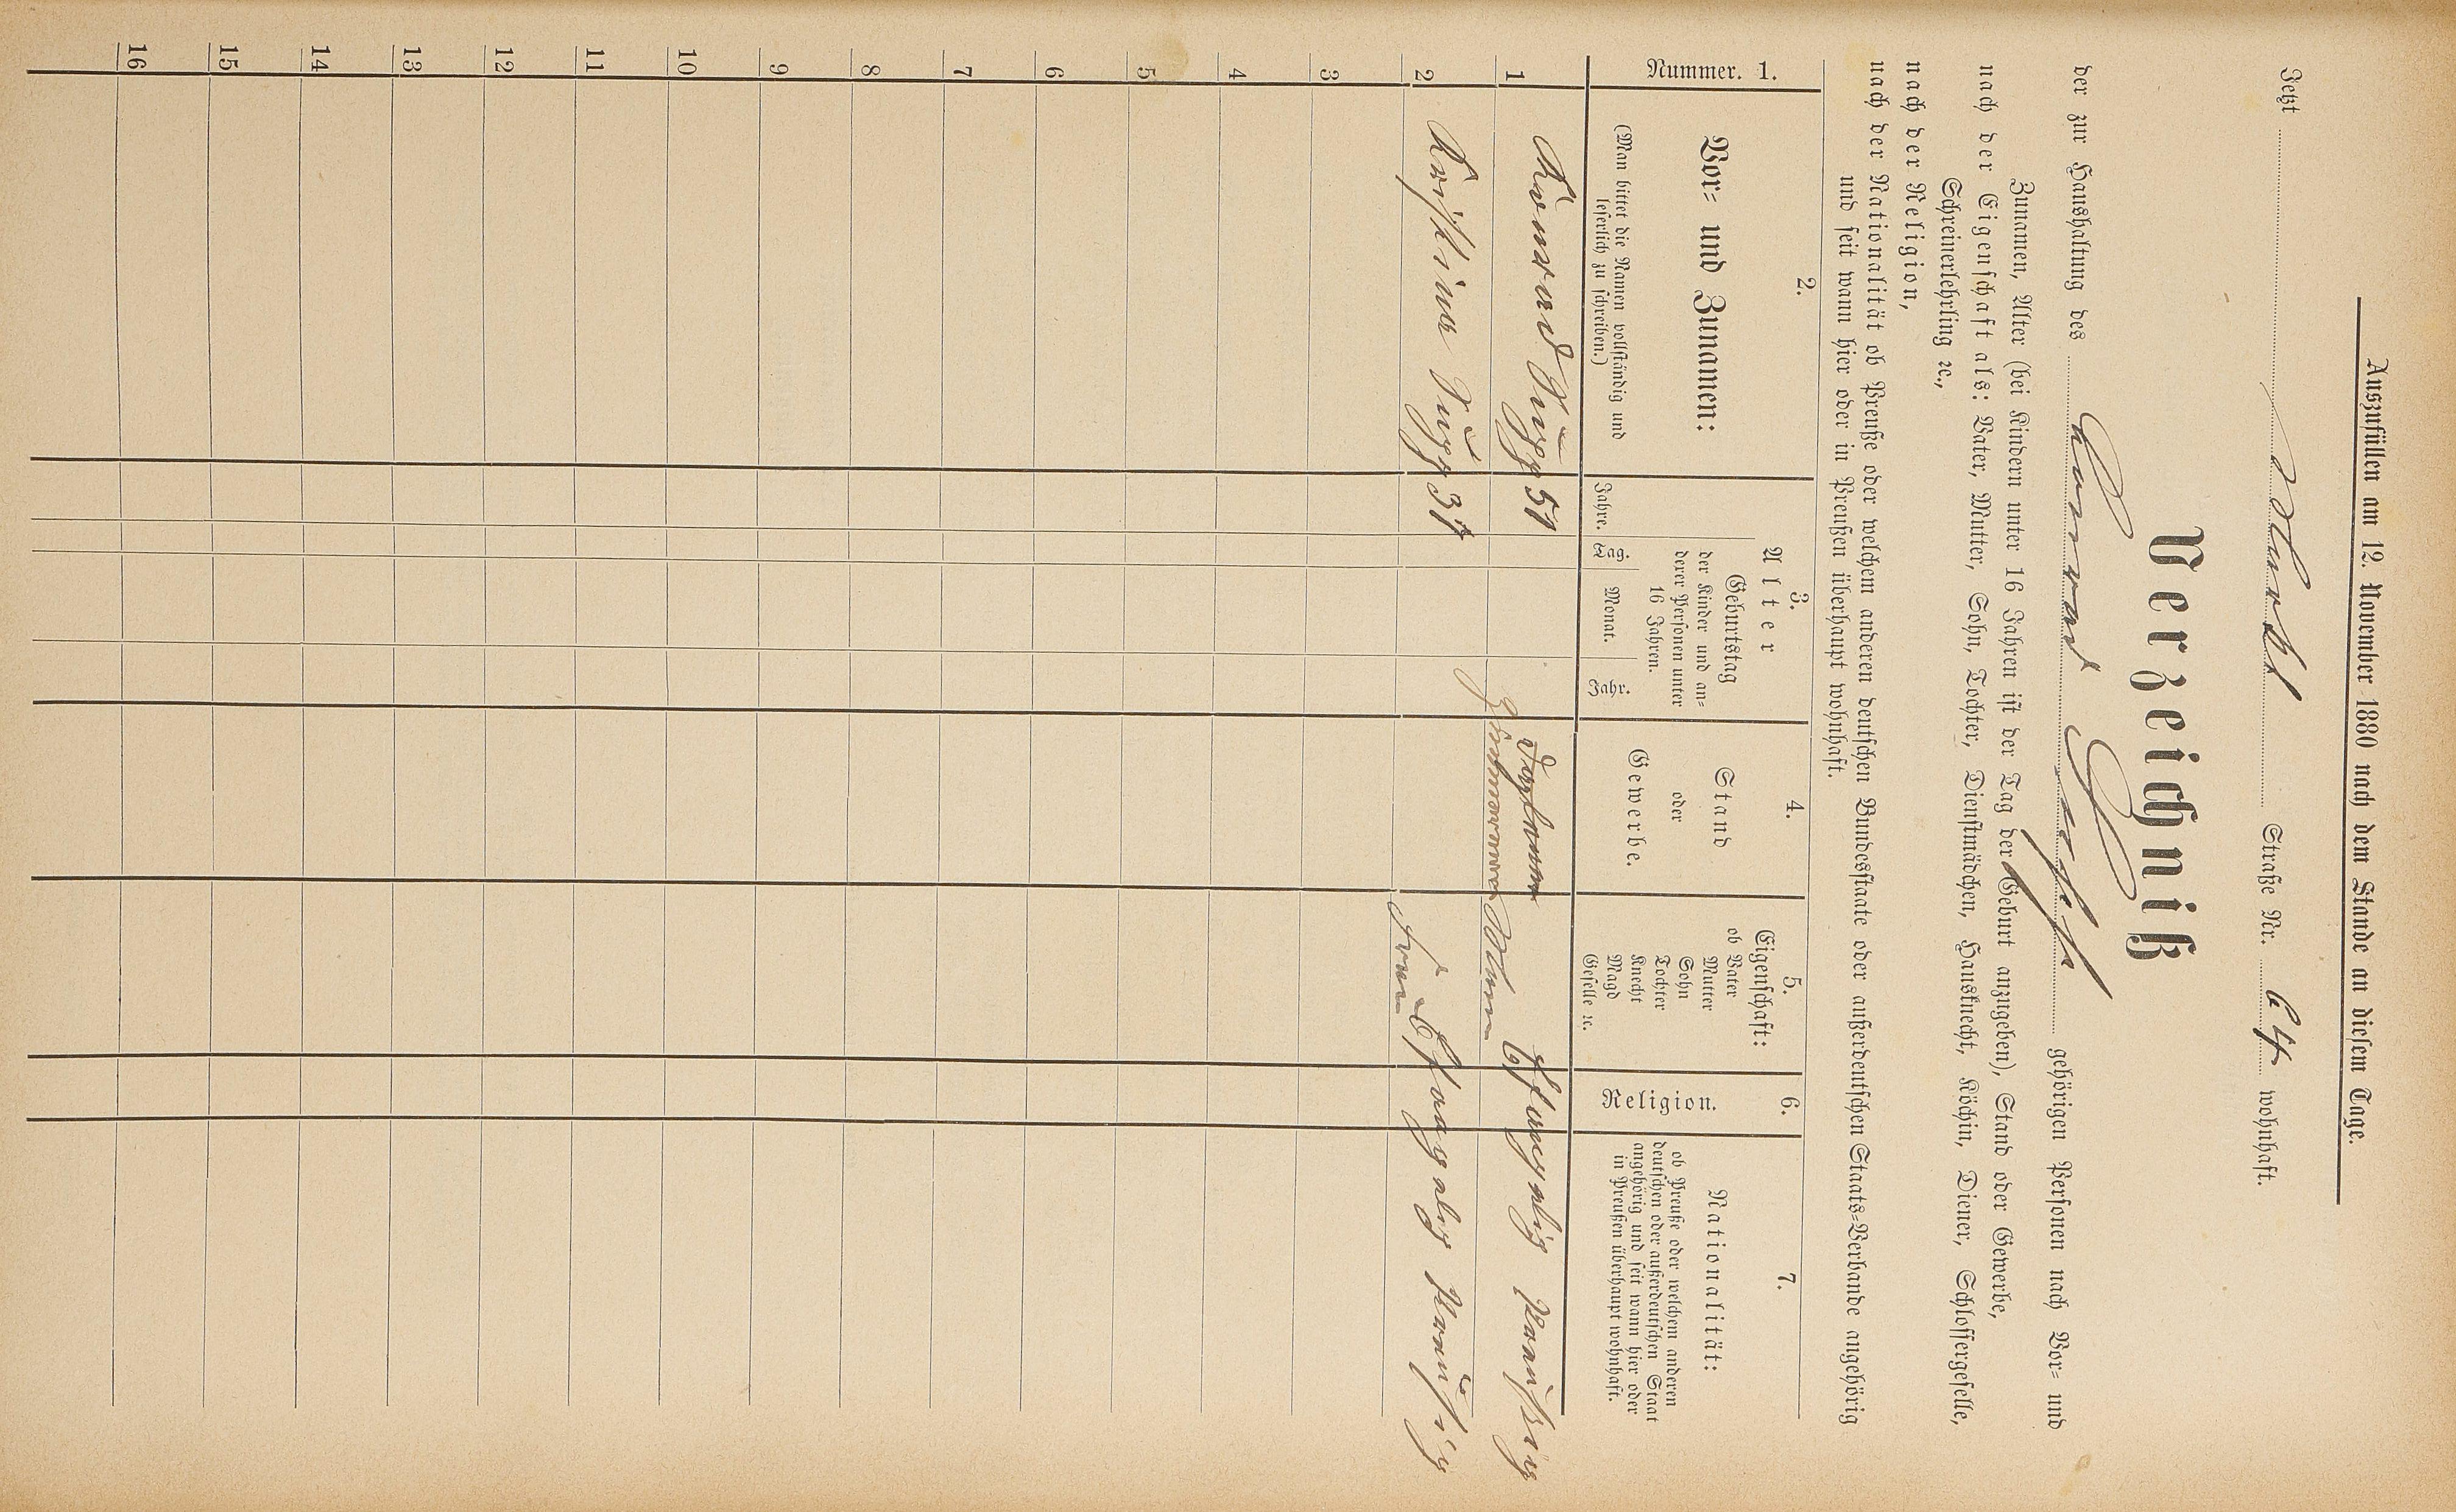 Auszufüllen am 12. November 1880 nach dem Stande an diesem Tage.
Jetzt Markt Straße Nr. 64 wohnhaft.
Verzeichniß
der zur Haushaltung des gehörigen Personen nach Vor- und
Zunamen, Alter (bei Kindern unter 16 Jahren ist der Tag der Geburt anzugeben), Stand oder Gewerbe,
nach der Eigenschaft als: Vater, Mutter, Sohn, Tochter, Dienstmädchen, Hausknecht, Köchin, Diener, Schlossergeselle,
Schreinerlehrling ꝛc.,
nach der Religion,
nach der Nationalität ob Preuße oder welchem anderen deutschen Bundesstaate oder außerdeutschen Staats-Verbande angehörig
und seit wann hier oder in Preußen überhaupt wohnhaft.
Nummer. 1.
2.
Vor- und Zunamen:
(Man bittet die Namen vollständig und
leserlich zu schreiben.)
3.
Alter
Jahre.
Geburtstag
der Kinder und an-
derer Personen unter
16 Jahren.
Tag. Monat. Jahr.
4.
Stand
oder
Gewerbe.
5.
Eigenschaft:
ob Vater
Mutter
Sohn
Tochter
Knecht
Magd
Geselle ꝛc.
6.
Religion.
7.
Nationalität:
ob Preuße oder welchem anderen
deutschen oder außerdeutschen Staat
angehörig und seit wann hier oder
in Preußen überhaupt wohnhaft.
1 51 Mann
2 37 Frau
3
4
5
6
7
8
9
10
11
12
13
14
15
16